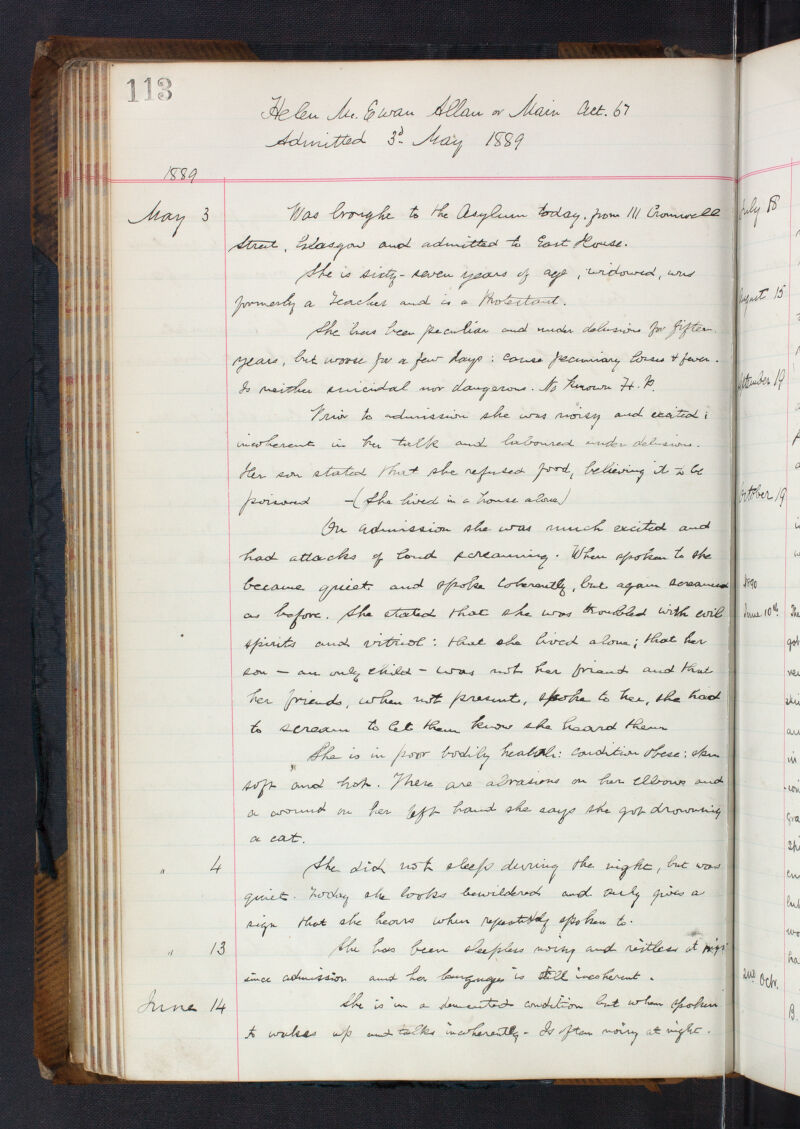 113
Helen Mc. Ewan Allan or Main Aet. 67
Admitted 3d May 1889
1889
May 3 Was brought to the Asylum today, from 111 Cromwell
Street, Glasgow and admitted to East House.
She is sixty-seven years of age, widowed, was
formerly a Teacher and is a Protestant.
She has been peculiar and under delusions for fifteen
years, but worse for a few days: cause pecuniary losses & fever.
Is neither suicidal nor dangerous. No known H. P.
Prior to admission she was noisy and excited:
incoherent in her talk and laboured under delusions.
Her son stated that she refused food, believing it to be
poisoned - (She lived in a house alone)
On admission she was much excited and
had attacks of loud screaming. When spoken to she
became quiet and spoke coherently, but again screamed
as before. She stated that she was troubled with evil
spirits and vitriol: that she lived alone; that her
son - an only child - was not her friend and that
her friends, when not present, spoke to her, she had
to scream to let them know she heard them
She is in poor bodily health: condition obese: skin
soft and hot. There are abrasions on her elbows and
a wound on her left hand she says she got drowning
a cat.
" 4 She did not sleep during the night, but was
quiet. Today she looks bewildered and only gives a
sign that she hears when repeatedly spoken to.
" 13 She has been sleepless noisy and restless at night
since admission and her language is still incoherent.
June 14 She is in a demented condition but when spoken
to wakes up and talks incoherently - Is often noisy at night.
July 8
August 15
September 19
October 19
1890
June 10th The
got
2nd Octr.